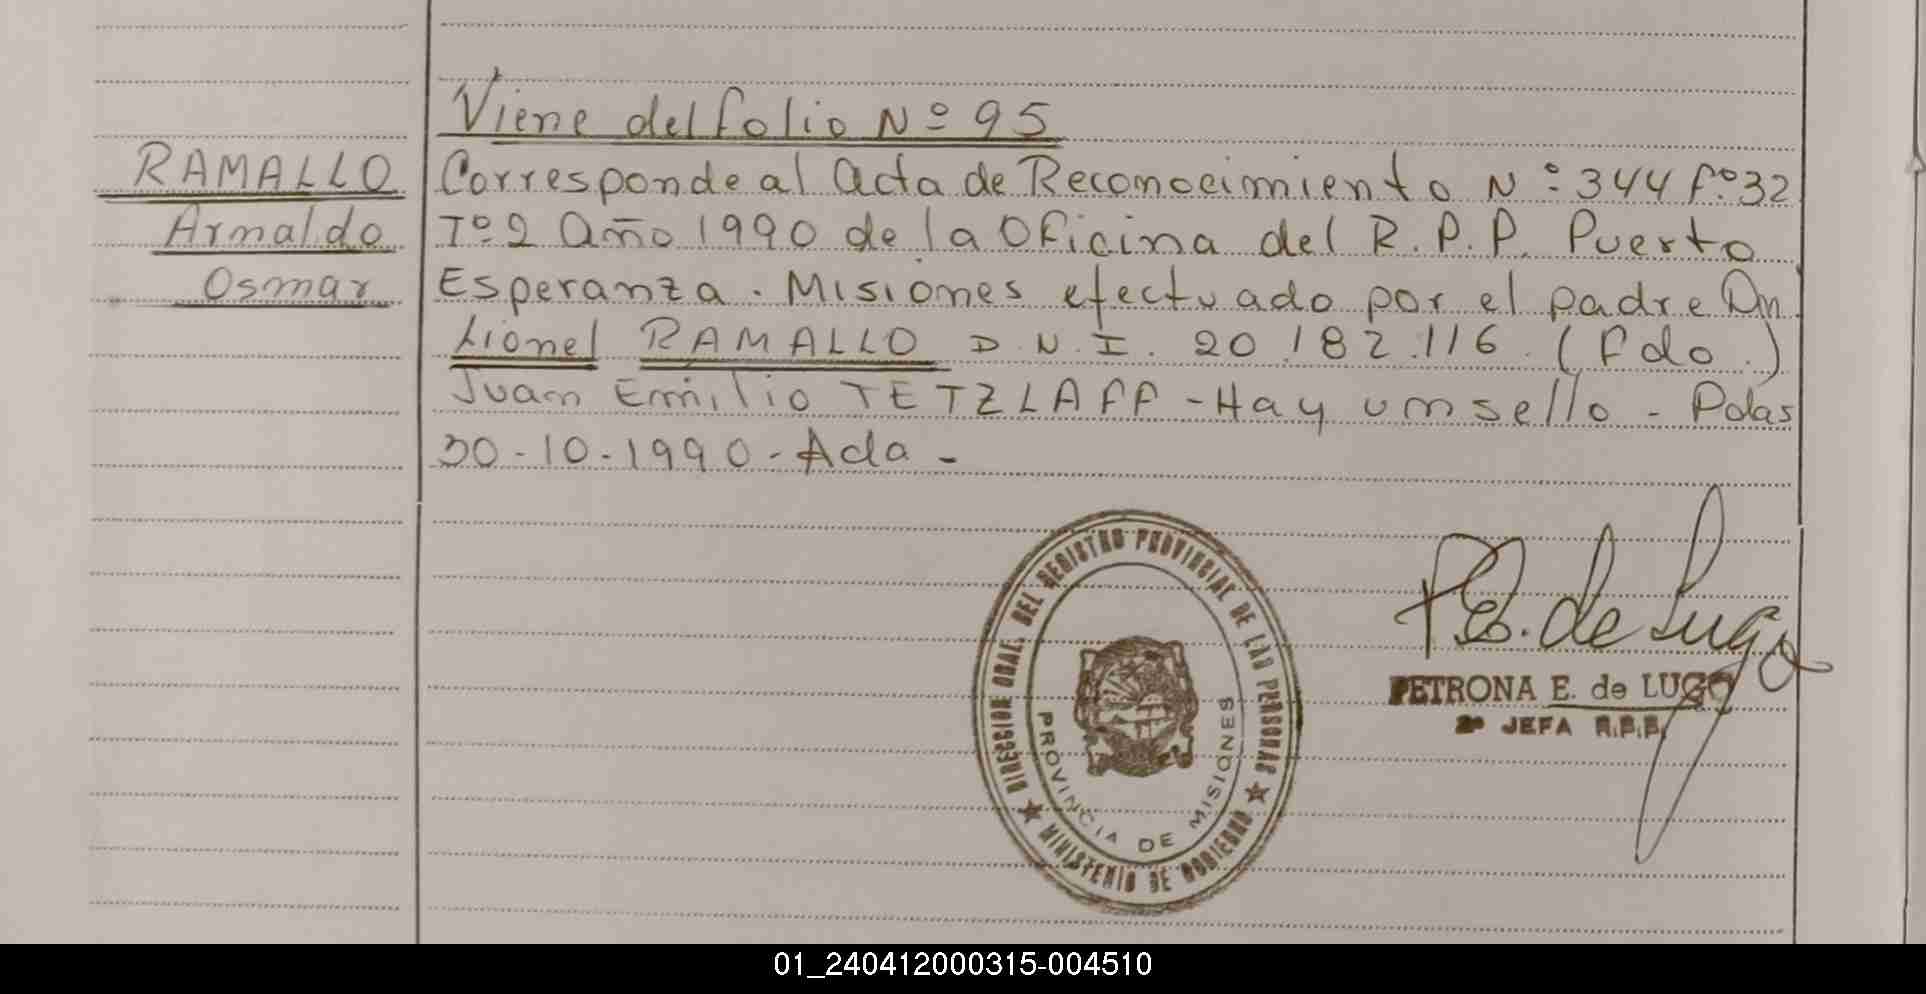 Viene del folio Nº 95
RAMALLO
Arnaldo
Osmar
Corresponde al Acta de Reconocimiento Nº 344 fº 32
Tº 2 Año 1990 de la Oficina del R.P.P. Puerto
Esperanza. Misiones efectuado por el padre Dn
Lionel RAMALLO D.N.I. 20.182.116. (Fdo.)
Juan Emilio TETZLAFF - Hay un sello - Pdas
30-10-1990 - Ada -
DIRECCION GRAL. DEL REGISTRO PROVINCIAL DE LAS PERSONAS
MINISTERIO DE GOBIERNO
PROVINCIA DE MISIONES
P E. de Lugo
PETRONA E. de LUGO
2º JEFA R.P.P.
01_240412000315-004510